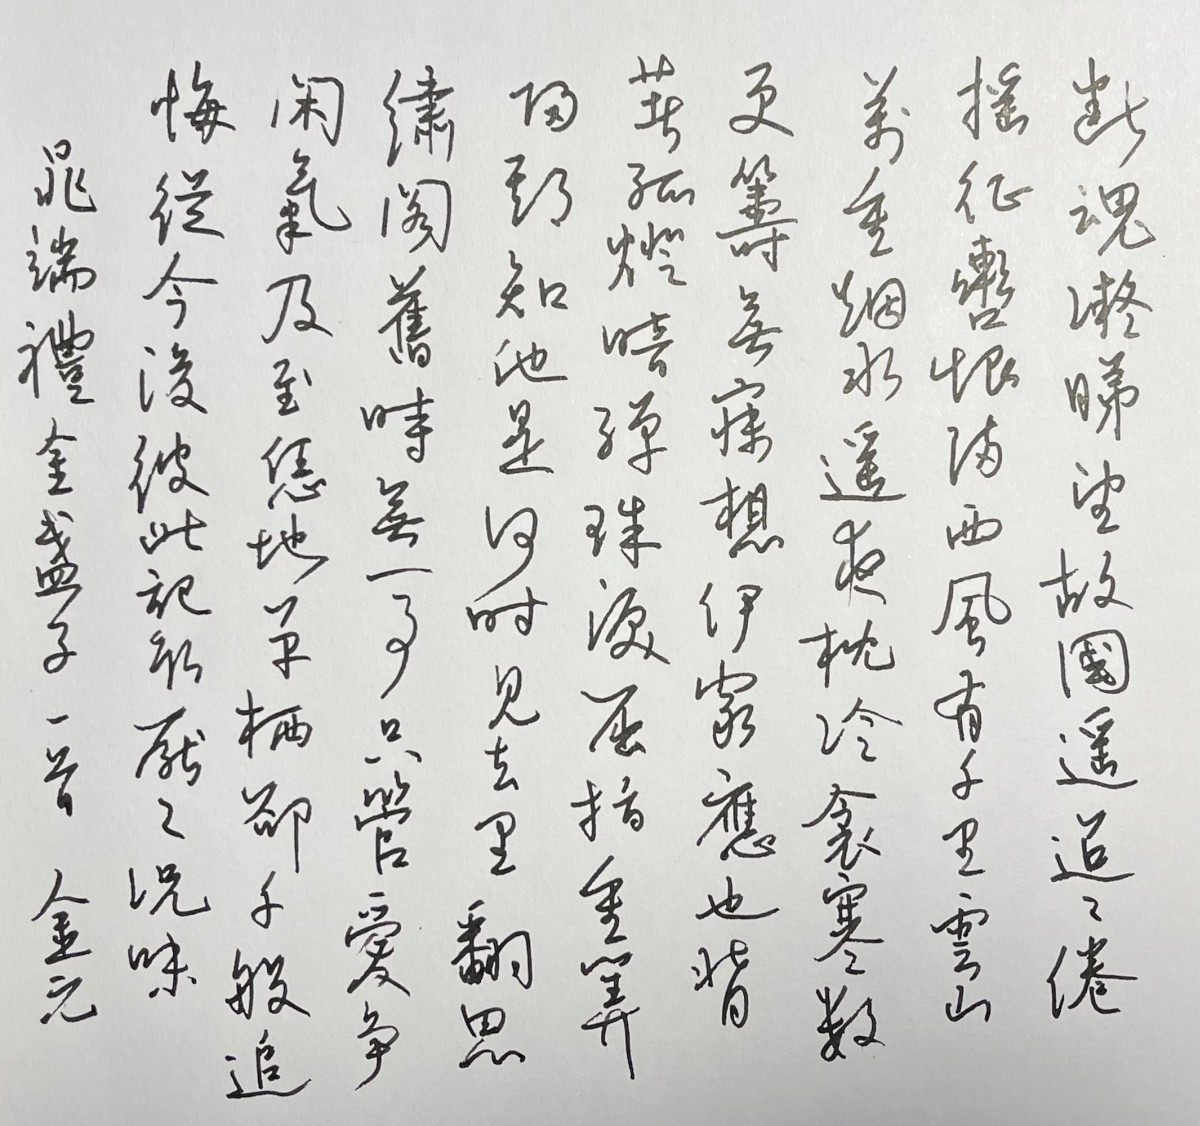 斷魂凝睇望故國遥迢〻倦
搖征轡恨滿西風有千里雲山
萬重烟水遥夜枕冷衾寒数
更籌無寐想伊家應也背
著孤燈暗彈珠淚屈指重算
歸期知他是何時見去里翻思
繡閣舊時無一事只管愛爭
閑氣及至恁地單栖卻千般追
悔從今後彼此記取厭〻況味
晁端禮金盞子一首 金元